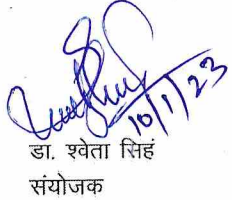 10/1/23
डा. श्वेता सिहं
संयोजक